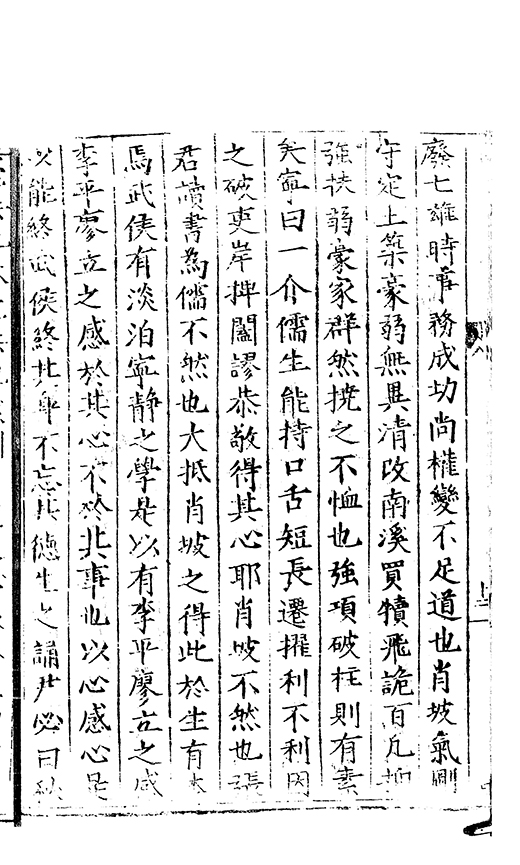 廢七雄時事務成功尚權變不足道也肖坡氣剛
守定上築豪弱無異清改南溪買犢飛詭百凡抑
強扶弱豪家群然撓之不恤也強項破柱則有素
矣寧曰一介儒生能持口舌短長遷擢利不利因
之破吏岸捭闔謬恭敬得其心耶肖坡不然也張
君讀書為儒不然也大抵肖坡之得此於生有本
焉武侯有淡泊寧靜之學是以有李平廖立之感
李平廖立之感於其心不於其事也以心感心是
以能終武侯終其身不忘其德生之誦尹必曰秋